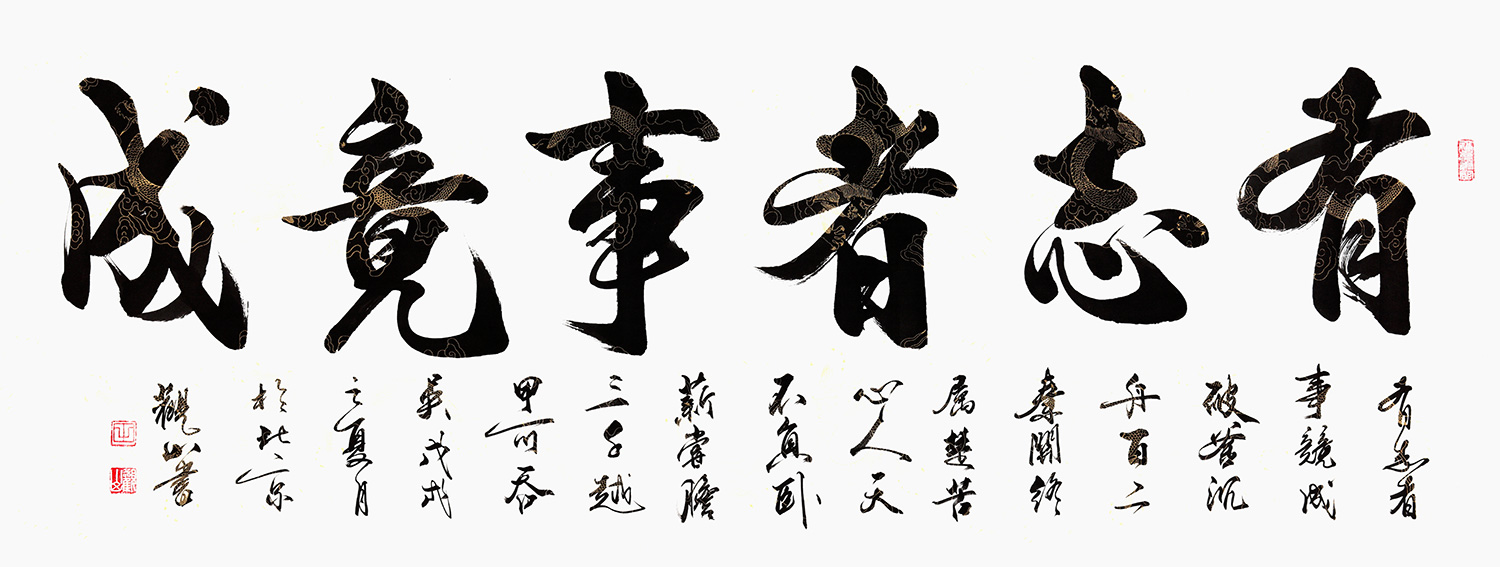 有志者事竟成
有志者
事競成
破釜沉
舟百二
秦關終
属楚苦
心人天
不負卧
薪嘗膽
三千越
甲可吞
吴戊戌
之夏月
於北京
觀山書